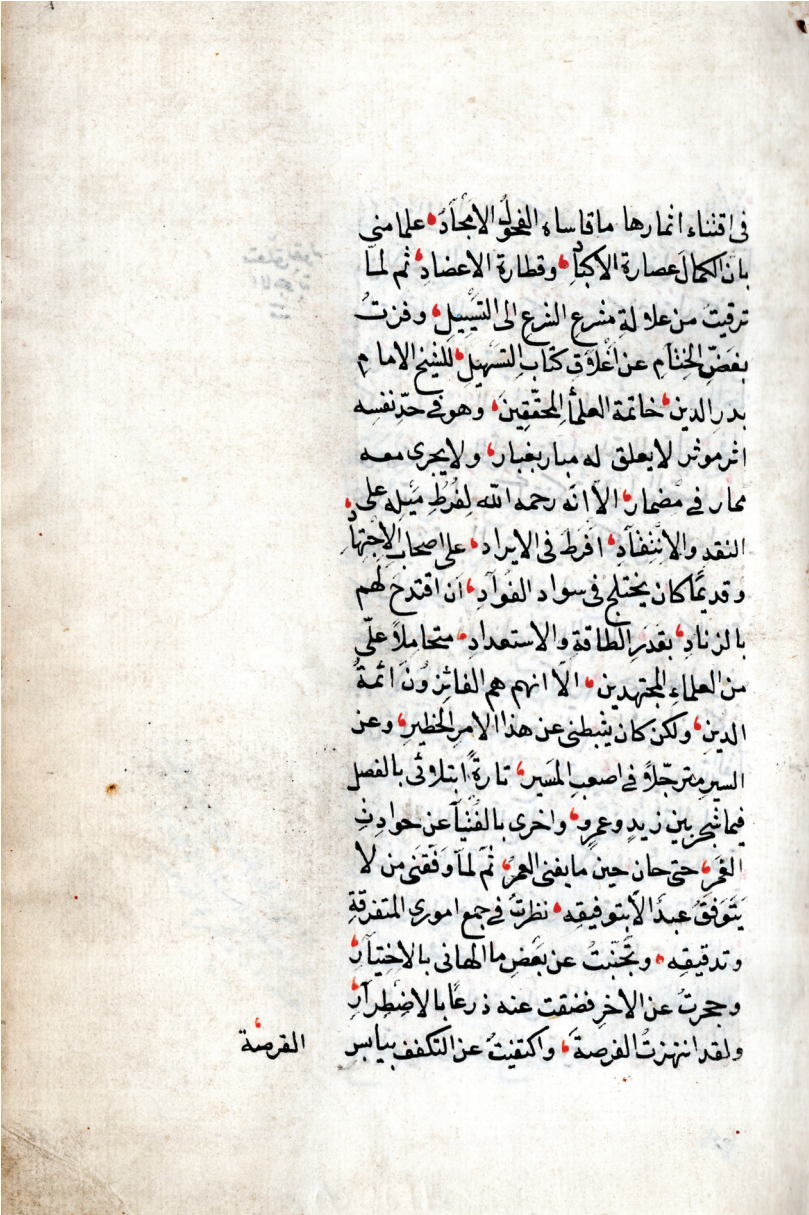 فى اقتناء اثمارها ما قاساه الفحولُ الامجادُ، علما منى
بان الكمالَ عصارة الاكبادِ، وقطارة الاعضادِ، ثم لما
ترقيت من علالةِ مشرعِ الشرعِ الى التسييلِ، وفزتُ
بفضِّ الختامِ عن أعلاق كتابِ التسهيل، للشيخ الامامِ
بدر الدين، خاتمة العلماءِ المحققينَ، وهو فى حدّ نفسه
اثر موثر لا يعلق له مبار بغبار، ولا يجرى معه
ممار فى مضمار، الا انّه رحمه الله لفرطِ ميله على
النقد والانتقادِ، افرطَ فى الايراد، على اصحاب الاجتهادِ،
وقديمًا كان يختلج فى سواد الفوآدِ، ان اقتدحَ لهم
بالزنادِ، بقدرِ الطاقةِ والاستعدادِ، متحاملاً علىّ
من العلماءِ المجتهدين، الّا انهم هم الفائزونَ ائمةُ
الدين، ولكن كان يثبطنى عن هذا الامرِ الخظيرِ، وعن
السيرِ مترجّلاً فى اصعبِ المسير، تارةً ابتلائى بالفصل
فيما شجر بين زيدٍ وعمرٍو، واخرى بالفتيآ عن حوادثِ
الغمرِ، حتى حان حين ما يفنى العمرُ، ثم لمآ وفقنى من لا
يَتَوفقُ عبدٌ الّا بتوفيقه، نظرتُ فى جمع امورى المتفرقةِ
وتدقيقه، وتجنبتُ عن بعضِ ما الهانى بالاختيآرِ،
وحجرتُ عن الاخرِ فضقت عنه ذرعًا بالاضطرآرِ،
ولقد انتهزتُ الفرصةَ، واكتفيتُ عن التكفف بيابس
القرصة